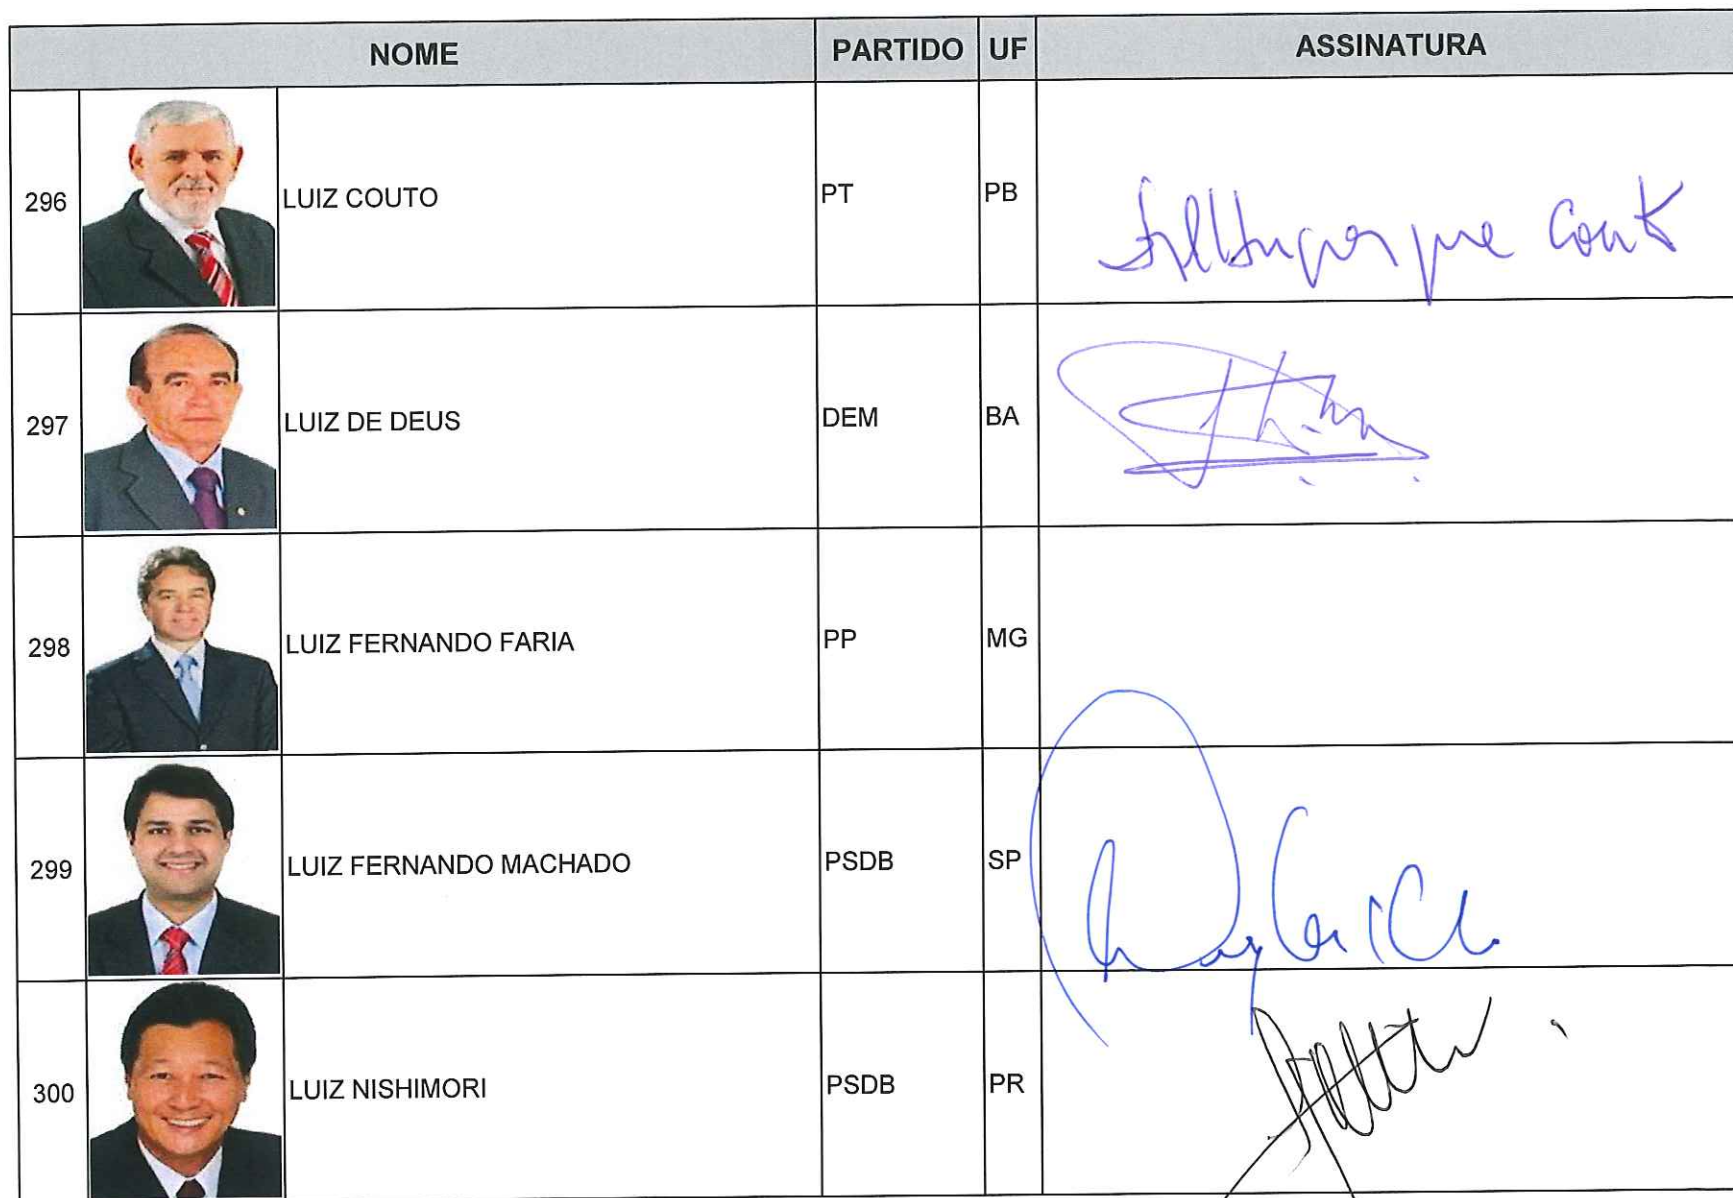 NOME PARTIDO UF ASSINATURA
296 LUIZ COUTO PT PB Couto
297 LUIZ DE DEUS DEM BA
298 LUIZ FERNANDO FARIA PP MG
299 LUIZ FERNANDO MACHADO PSDB SP
300 LUIZ NISHIMORI PSDB PR